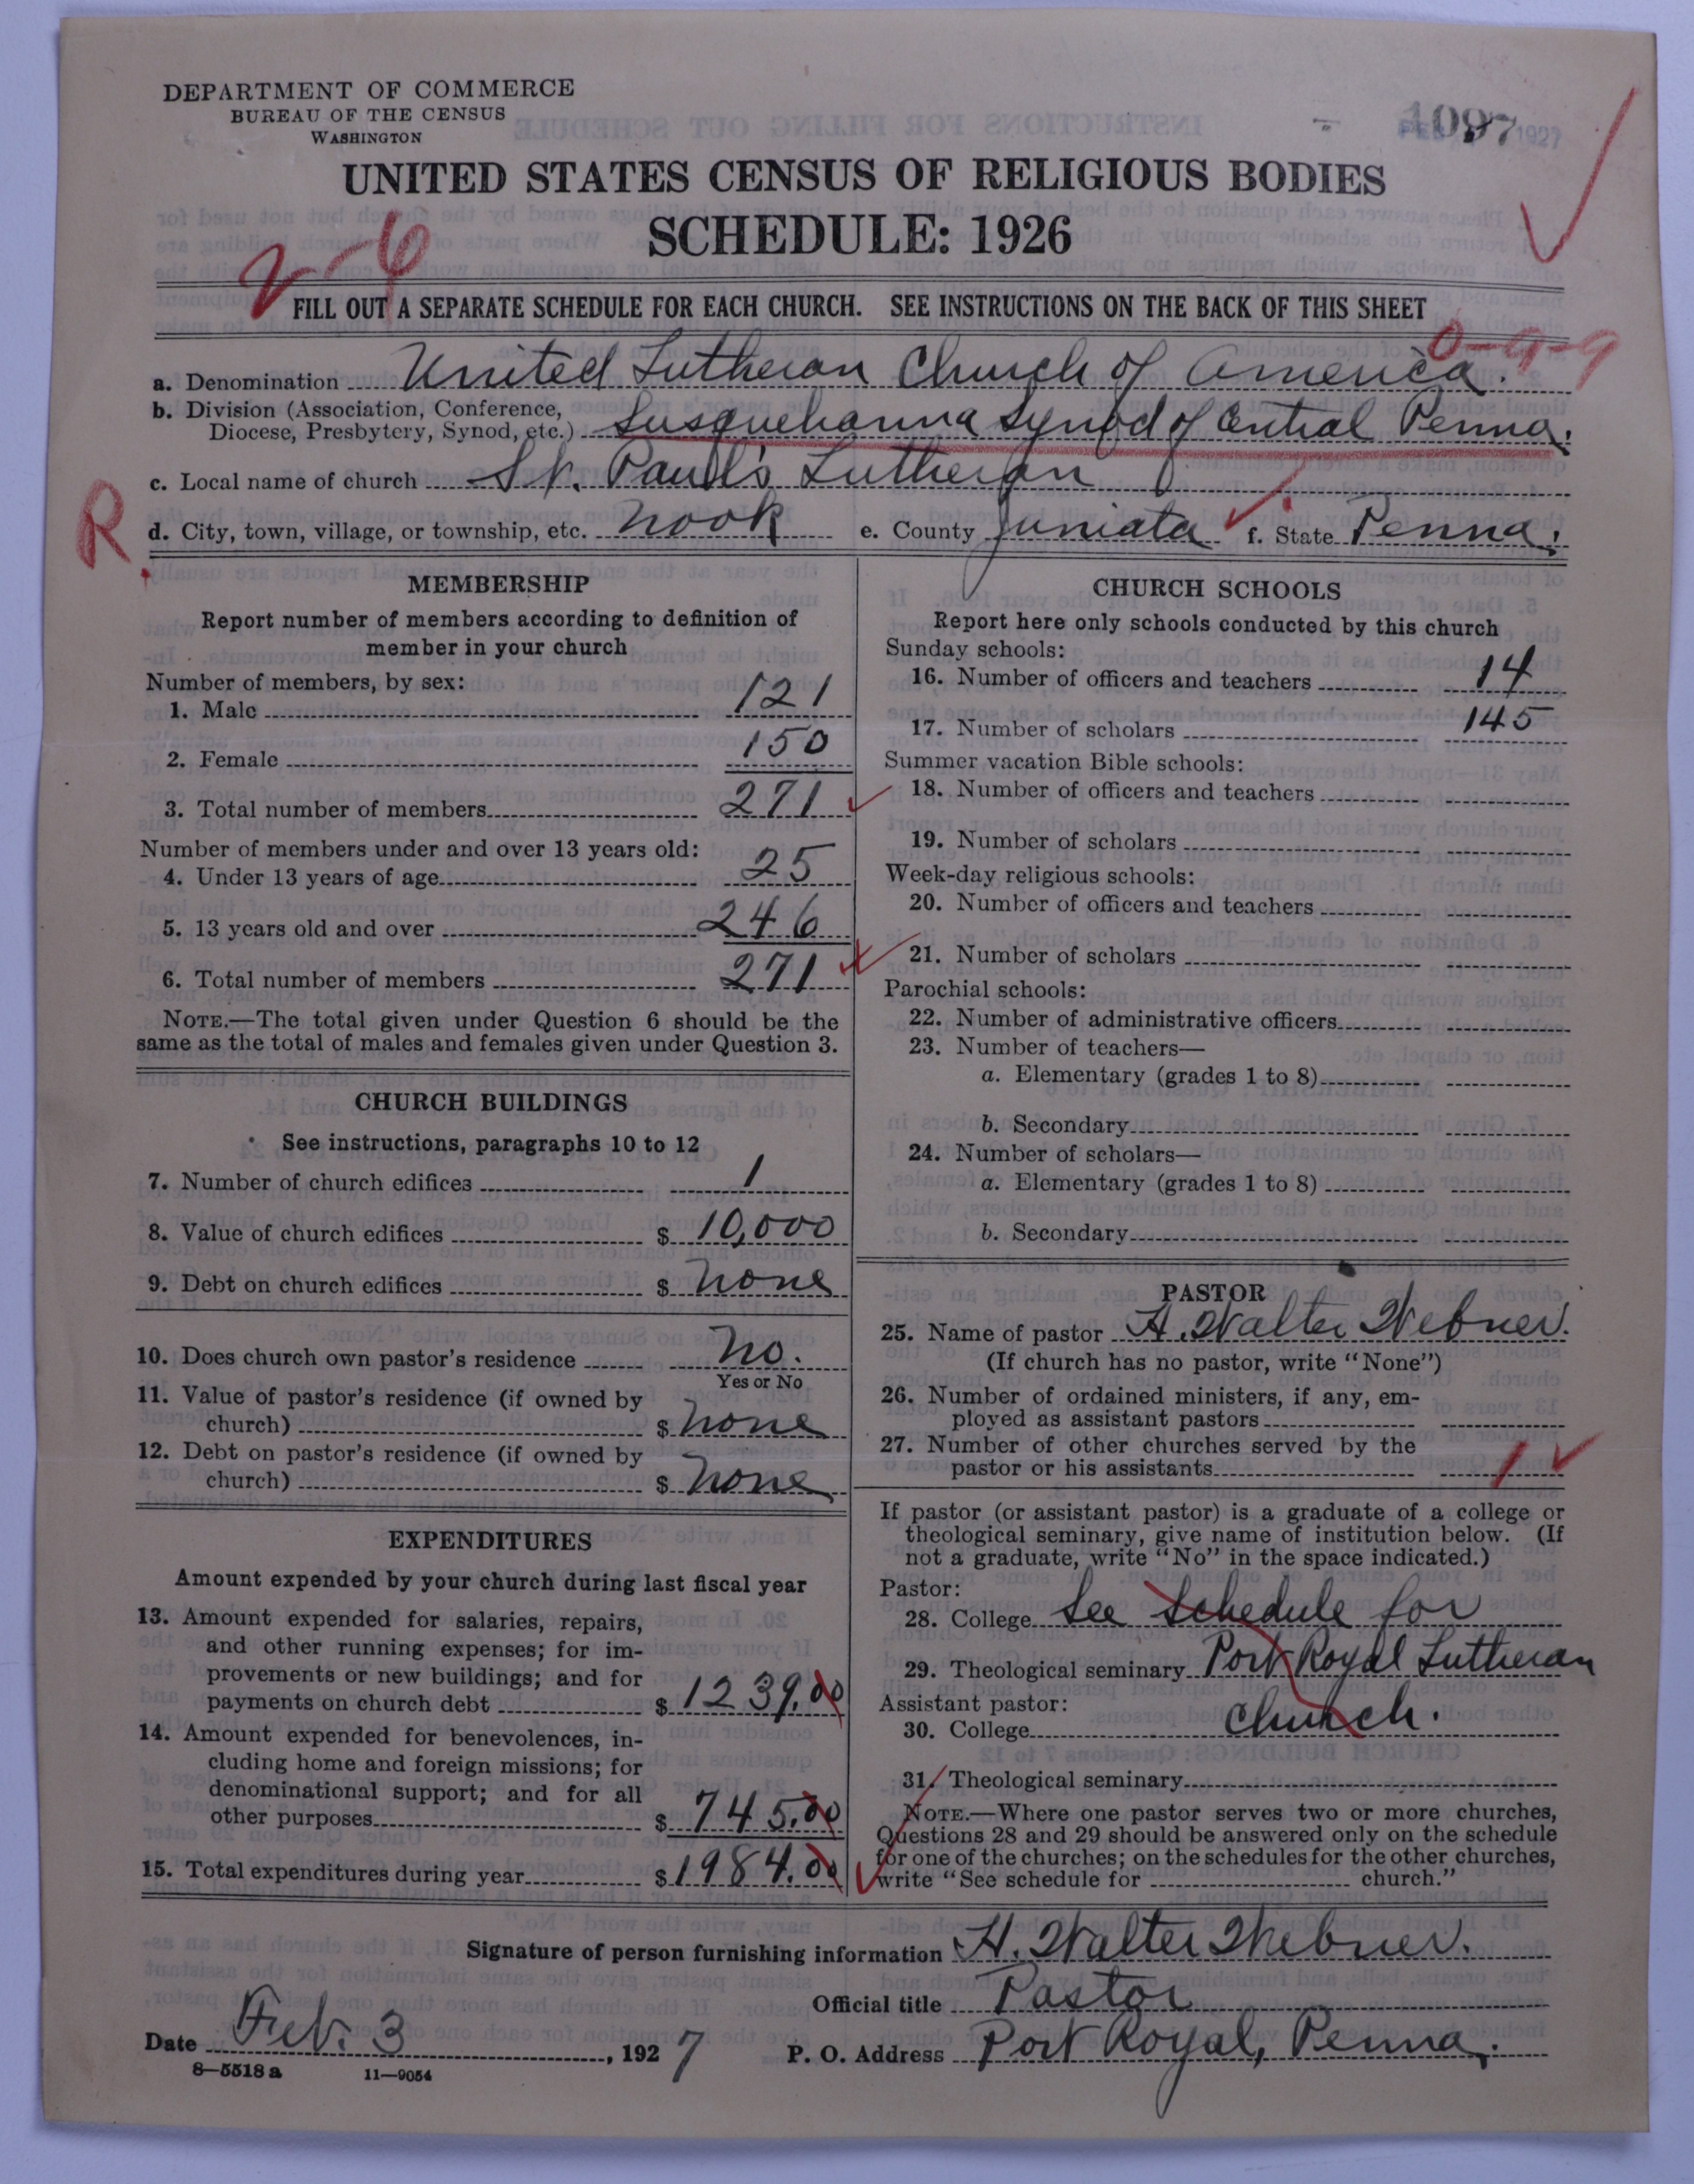 DEPARTMENT OF COMMERCE
BUREAU OF THE CENSUS
WASHINGTON
1097
1927
UNITED STATES CENSUS OF RELIGIOUS BODIES
SCHEDULE: 1926
2-6
FILL OUT A SEPARATE SCHEDULE FOR EACH CHURCH. SEE INSTRUCTIONS ON THE BACK OF THIS SHEET
0-9-9
a. Denomination United Lutheran Church of America.
b. Division (Association, Conference, Diocese, Presbytery, Synod, etc.) Susquehanna Synod of Central Penna.
c. Local name of church St. Paul's Lutheran
R
d. City, town, village, or township, etc. Nook e. County Juniata f. State Penna.
MEMBERSHIP
Report number of members according to definition of
member in your church
Number of members, by sex:
1. Male 121
2. Female 150
3. Total number of members 271
Number of members under and over 13 years old:
4. Under 13 years of age 25
5. 13 years old and over 246
6. Total number of members 271
NOTE.—The total given under Question 6 should be the
same as the total of males and females given under Question 3.
CHURCH BUILDINGS
See instructions, paragraphs 10 to 12
7. Number of church edifices 1
8. Value of church edifices $ 10,000
9. Debt on church edifices $ None
10. Does church own pastor's residence No.
Yes or No
11. Value of pastor's residence (if owned by
church) $ None
12. Debt on pastor's residence (if owned by
church) $ None
EXPENDITURES
Amount expended by your church during last fiscal year
13. Amount expended for salaries, repairs,
and other running expenses; for im-
provements or new buildings; and for
payments on church debt $ 1239.00
14. Amount expended for benevolences, in-
cluding home and foreign missions; for
denominational support; and for all
other purposes $ 745.00
15. Total expenditures during year $ 1984.00
CHURCH SCHOOLS
Report here only schools conducted by this church
Sunday schools:
16. Number of officers and teachers 14
17. Number of scholars 145
Summer vacation Bible schools:
18. Number of officers and teachers
19. Number of scholars
Week-day religious schools:
20. Number of officers and teachers
21. Number of scholars
Parochial schools:
22. Number of administrative officers
23. Number of teachers—
a. Elementary (grades 1 to 8)
b. Secondary
24. Number of scholars—
a. Elementary (grades 1 to 8)
b. Secondary
PASTOR
25. Name of pastor H. Walter Webner.
(If church has no pastor, write "None")
26. Number of ordained ministers, if any, em-
ployed as assistant pastors
27. Number of other churches served by the
pastor or his assistants 1
If pastor (or assistant pastor) is a graduate of a college or
theological seminary, give name of institution below. (If
not a graduate, write "No" in the space indicated.)
Pastor:
28. College See Schedule for
29. Theological seminary Port Royal Lutheran
Assistant pastor:
30. College Church.
31. Theological seminary
NOTE.—Where one pastor serves two or more churches,
Questions 28 and 29 should be answered only on the schedule
for one of the churches; on the schedules for the other churches,
write "See schedule for church."
Signature of person furnishing information H. Walter Webner.
Official title Pastor
Date Feb. 3, 1927 P. O. Address Port Royal, Penna.
8—5518 a 11—9054